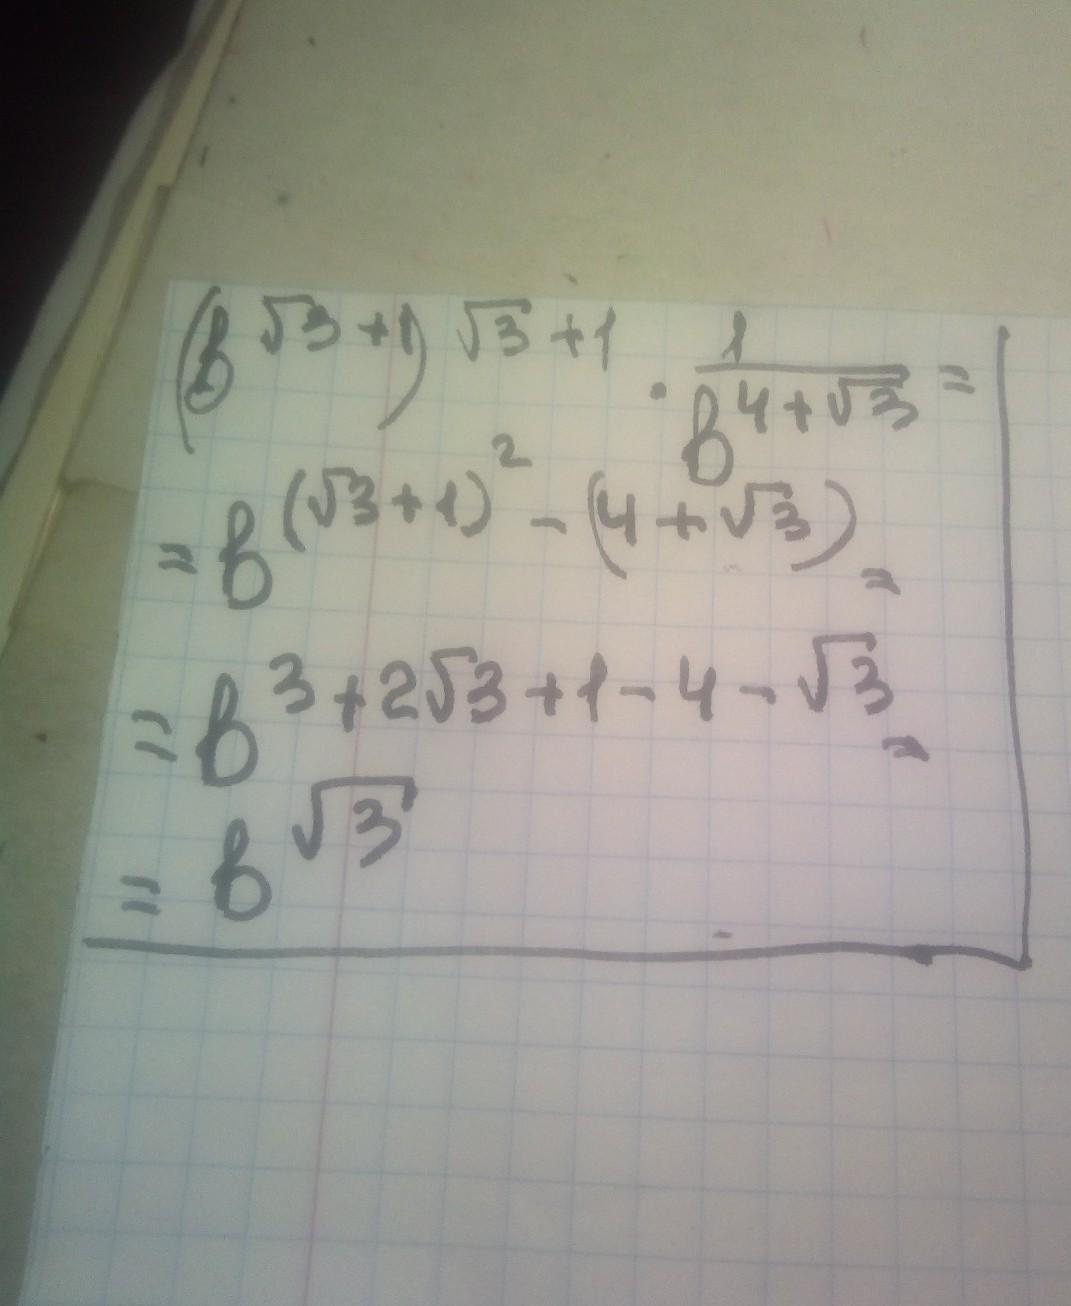 (b^{√3+1})^{√3+1} · 1/b^{4+√3} =
= b^{(√3+1)^2 - (4+√3)} =
= b^{3+2√3+1-4-√3} =
= b^{√3}